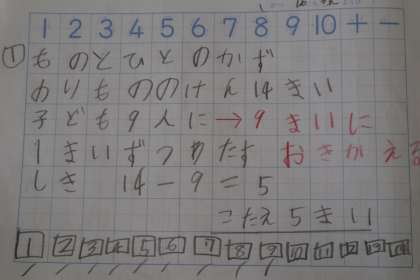 1 2 3 4 5 6 7 8 9 10 + −
① ものとひとのかず
のりもののけん14まい
子ども9人に→9まいに
1まいずつわたす おきかえる
しき 14−9=5
こたえ5まい
1 2 3 4 5 6 7 8 9 10 11 12 13 14